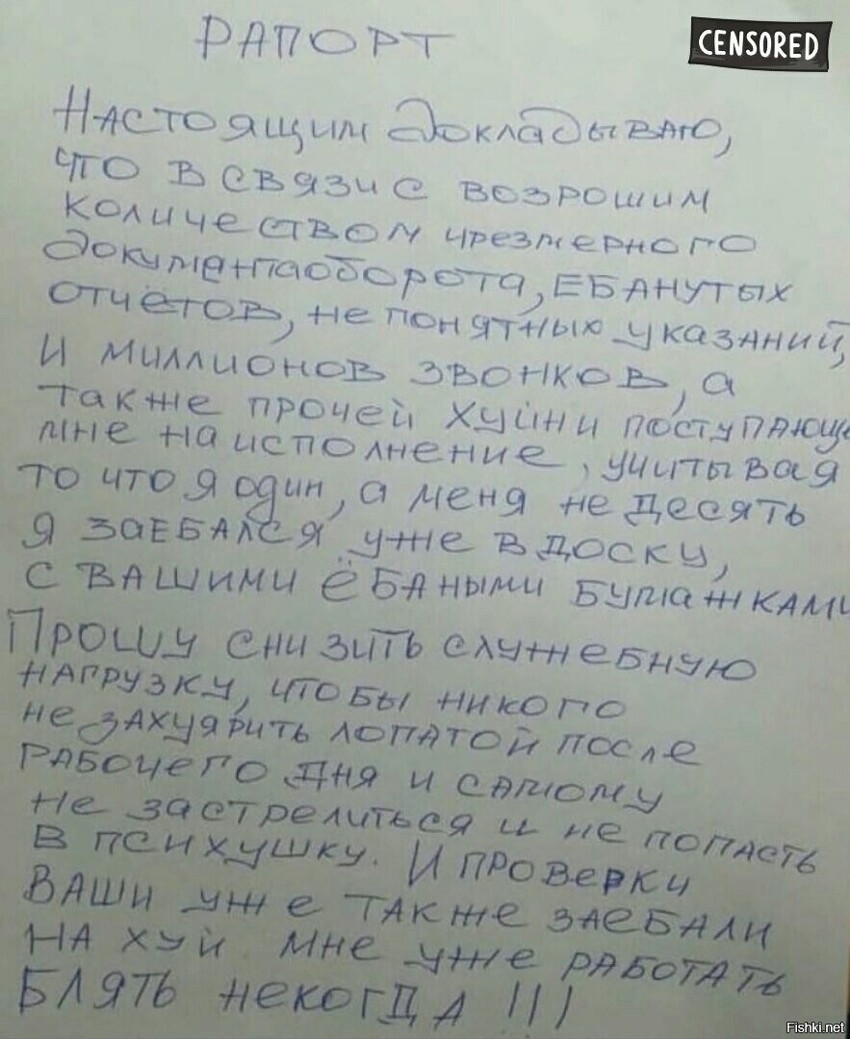 РАПОРТ
CENSORED
Настоящим докладываю,
что в связи с возрошим
количеством чрезмерного
документаоборота, ебанутых
отчётов, не понятных указаний,
и миллионов звонков, а
также прочей хуйни поступающ
мне на исполнение, учитывая
то что я один, а меня не десять
я заебался уже в доску,
с вашими ёбаными бумажками
Прошу снизить служебную
нагрузку, чтобы никого
не захуярить лопатой после
рабочего дня и самому
не застрелиться и не попасть
в психушку. И проверки
ваши уже также заебали
на хуй. мне уже работать
блять некогда !!!
Fishki.net